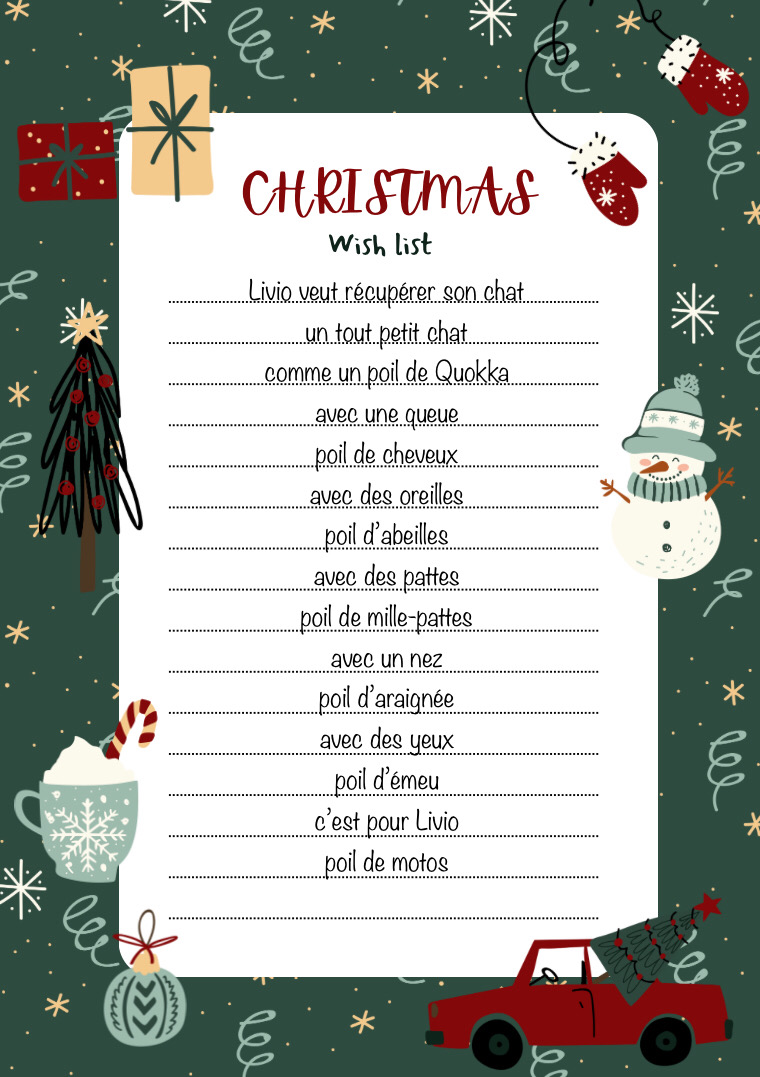 CHRISTMAS
Wish list
Livio veut récupérer son chat
un tout petit chat
comme un poil de Quokka
avec une queue
poil de cheveux
avec des oreilles
poil d'abeilles
avec des pattes
poil de mille-pattes
avec un nez
poil d'araignée
avec des yeux
poil d'émeu
c'est pour Livio
poil de motos